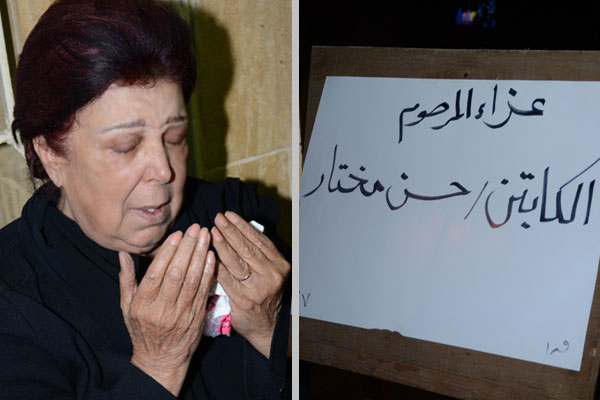 عزاء المرحوم
الكابتن / حسن مختار